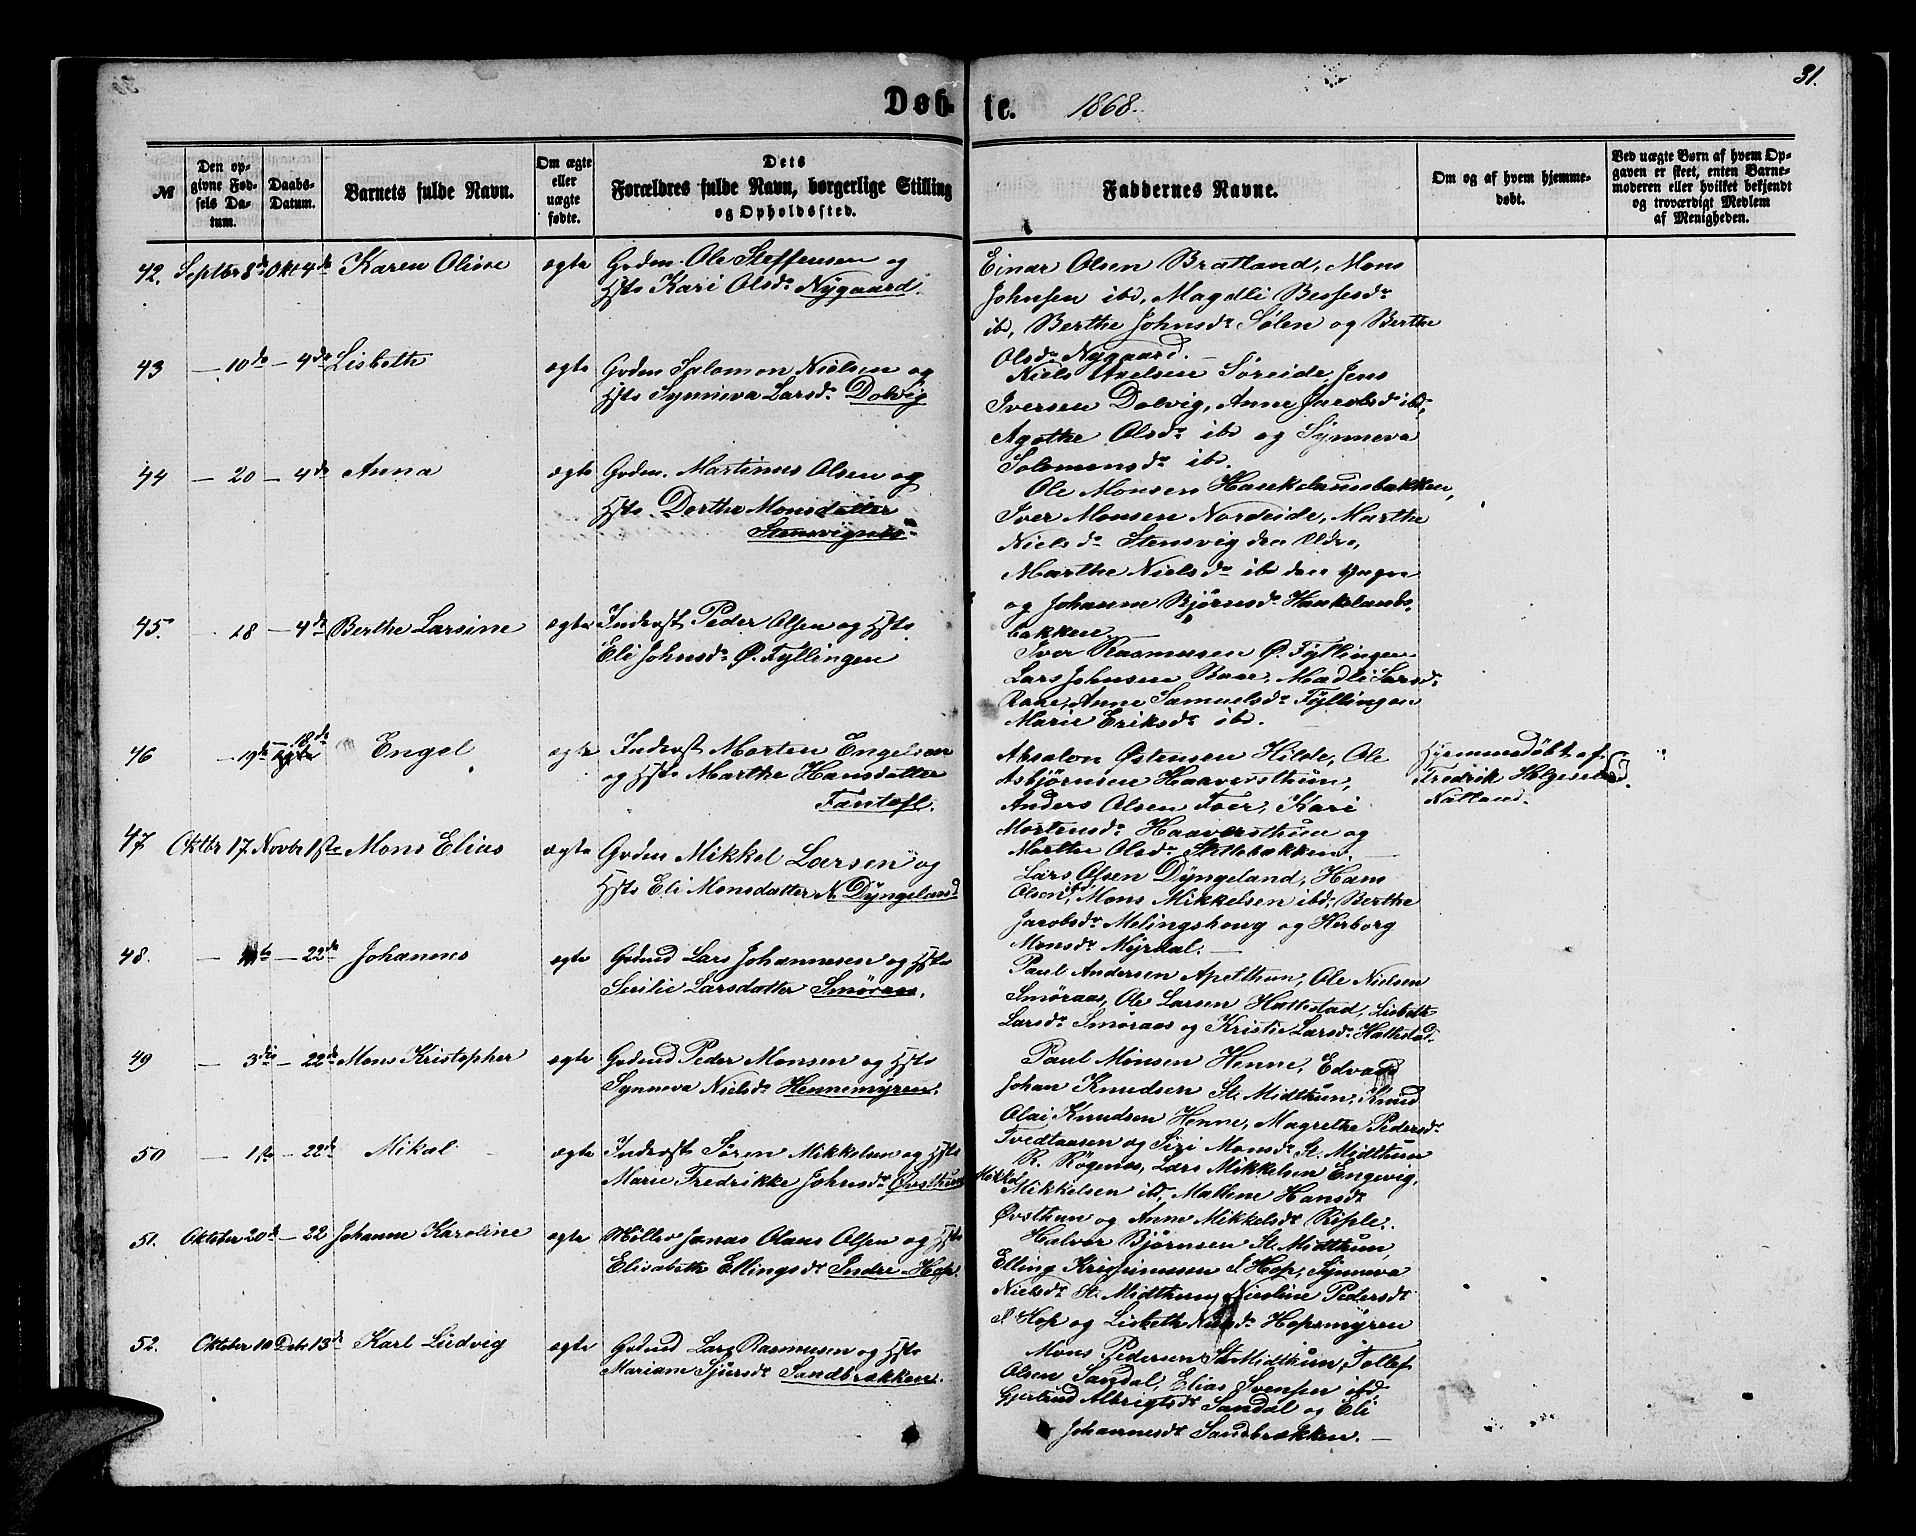 31.
Døbte. 1868.
№
Den opgivne Fødsels Datum.
Daabs-Datum.
Barnets fulde Navn.
Om ægte eller uægte fødte.
Dets Forældres fulde Navn, borgerlige Stilling og Opholdssted.
Faddernes Navne.
Om og af hvem hjemmedøbt.
Ved uægte Børn af hvem Opgaven er skeet, enten Barnemoderen eller hvilket bekjendt og troværdigt Medlem af Menigheden.
42. Septbr 8de Okt 4de Karen Olive ægte
Grdm. Ole Steffensen og
Hst. Kari Olsdr Nygaard.
Einar Olsen Bratland, Mons
Johnsen ibd, Magdli
ibd, Berthe Johnsdr Sølen og Berthe
Olsdr Nygaard.
43 — 10de — 4de Lisbeth ægte
Grdm Salomon Nielsen og
Hst. Synneva Larsdr Dolvig
Niels Axelsen Søreide, Jens
Iversen Dolvig, Anne Jacobsd ibd,
Agathe Olsdr ibd og Synneva
Salomonsdr ibd.
44 — 20 — 4de Anna ægte
Grdm. Martinus Olsen og
Hst. Dorthe Monsdatter
Stensvignes
Ole Monsen Haukelandsbakken,
Iver Monsen Nordeide, Marthe
Nielsdr Stensvig den Ældre,
Marthe Nielsdr ibd den yngre
og Johanne Bjørnsdr Haukelands-
bakken.
45. 18 — 4de Berthe Larsine ægte
Inderst Peder Olsen og Hst.
Eli Johnsdr Ø. Fyllingen
Iver Rasmusen Ø. Fyllingen
Lars Johnsen Raae, Madli Larsdr
Raae, Anne Samuelsdr Fyllingen
Marie Eriksdr ibd.
46 — 19de 18de Engel ægte
Inderst Morten Engelsen
og Hst. Marthe Hansdatter
Fantoft.
Absalon Østensen Hilde, Ole
Asbjørnsen Haaversthun,
Anders Olsen Tver, Kari
Mortensdr Haaversthun og
Marthe Olsdr
Hjemmedøbt af
Fredrik Helgesen
Natland.
47 Oktbr 17 Novbr 1ste Mons Elias ægte
Grdm Mikkel Larsen og
Hst. Eli Monsdatter N. Dyngeland
Lars Olsen Dyngeland, Hans
Olsen ibd, Mons Mikkelsen ibd, Berthe
Jacobsdr Melingshoug og Herborg
Monsdr Myrdal.
48. — — 22de Johannes ægte
Grdmd Lars Johannesen og Hst.
Sirilie Larsdatter Smøraas.
Paul Andersen Apelthun, Ole Nielsen
Smøraas, Ole Larsen Hattestad, Lisbeth
Larsdr Smøraas og Kristie Larsdr Hattestad.
49 — 3die — 22de Mons Kristopher ægte
Grdmd Peder Monsen og Hst.
Synneva Nielsdr Hennemyren.
Paul Monsen Henne, Edvard
Johan Knudsen St. Midthun, Knud
Olai Knudsen Henne, Magrethe Pedersdr
Tvedtaasen og Sizi Monsdr St. Midthun
50 — 1ste — 22de Mikal ægte
Inderst Søren Mikkelsen og Hst.
Marie Fredrikke Johnsdr Øvsthun
R. Røgenes, Lars Mikkelsen Engevig,
Mikkel Mikkelsen ibd, Mallene Hansdr
Øvsthun og Anne Mikkelsdr Riple.
51. Oktober 20de — 22 Johanne Karoline ægte
Møller Jonas Olaus Olsen og Hst.
Elisabeth Ellingsdr Indre-Hop.
Halvor Bjørnsen St. Midthun,
Elling I. Hop, Synneva
Nielsdr St. Midthun, Nicoline Pedersdr
I. Hop og Lisbeth Nielsdr Hopsmyren
52. Oktober 10 Decbr 13de Karl Ludvig ægte
Grdmd Lars Rasmusen og Hst.
Mariam Sjursdr Sandbrækken.
Mons Pedersen St. Midthun, Tollef
Olsen Sandal, Elias Svensen ibd,
Gjertrud Albrigtsdr Sandal og Eli
Johannesdr Sandbrækken.